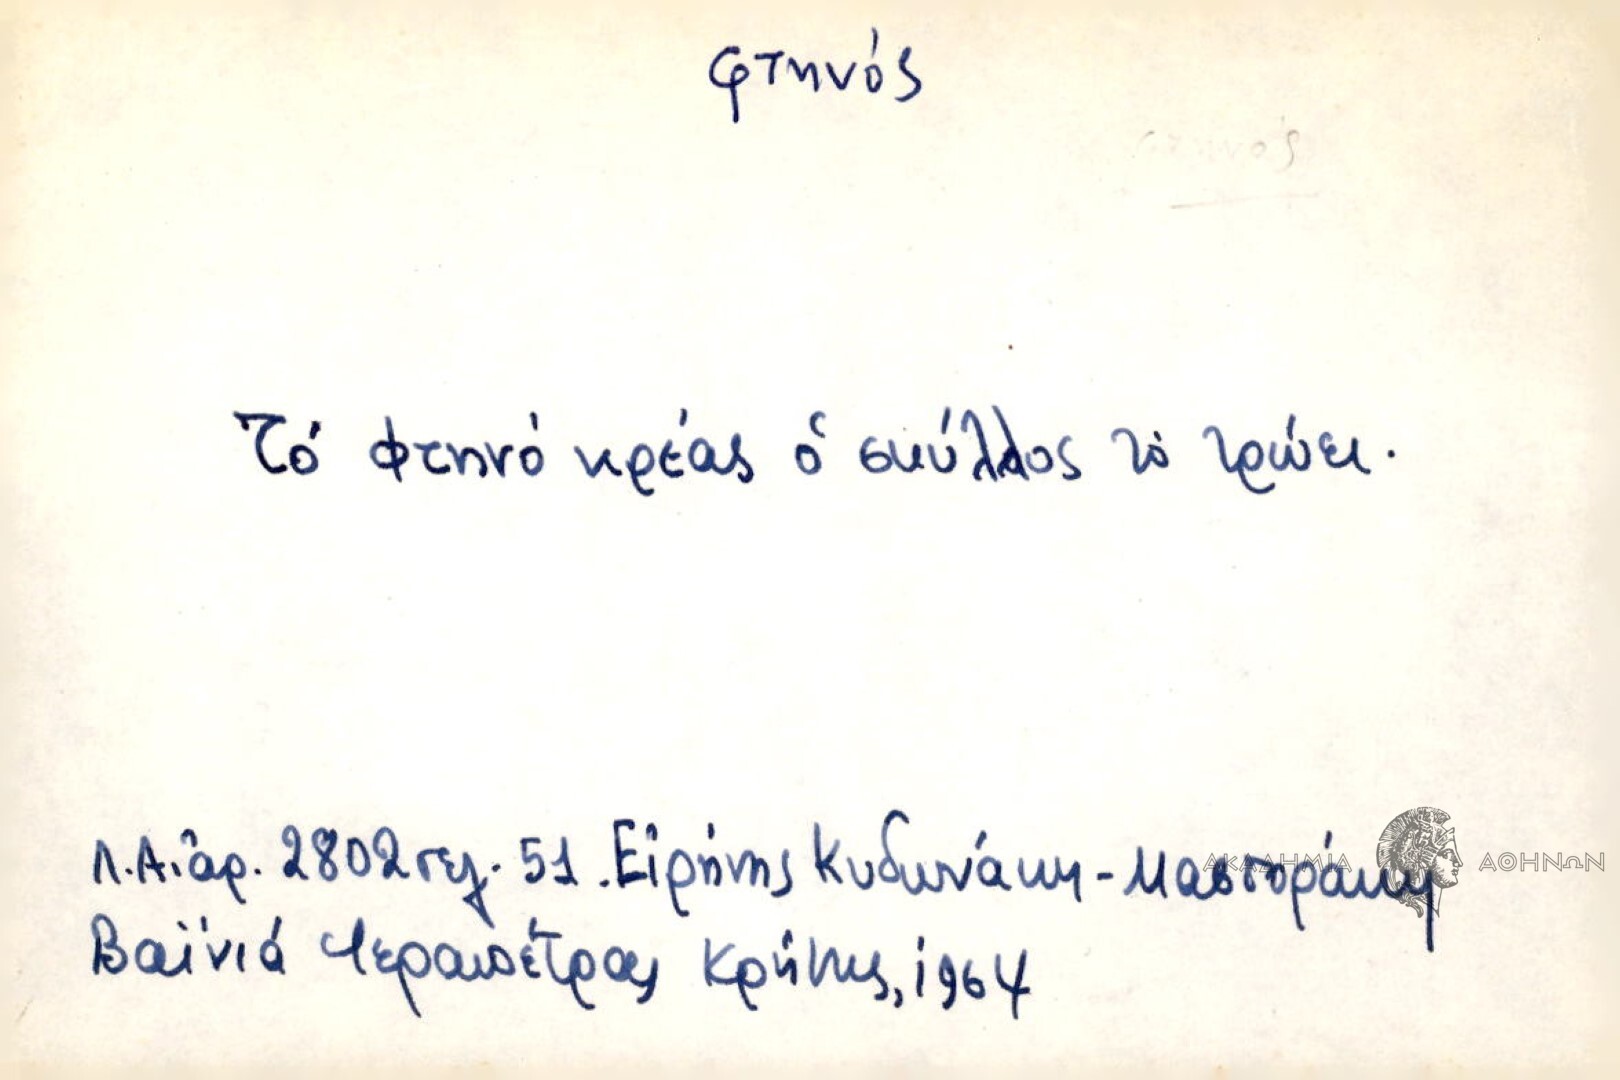 φτηνός
φτηνός
Τό φτηνό κρέας ὁ σκύλλος τό τρώει.
Λ.Α. ἀρ. 2802 σελ. 51. Εἰρήνης Κυδωνάκη - Μαστοράκη
ΑΚΑΔΗΜΙΑ ΑΘΗΝΩΝ
Βαϊνιά Ἱεραπέτρας Κρήτης, 1964